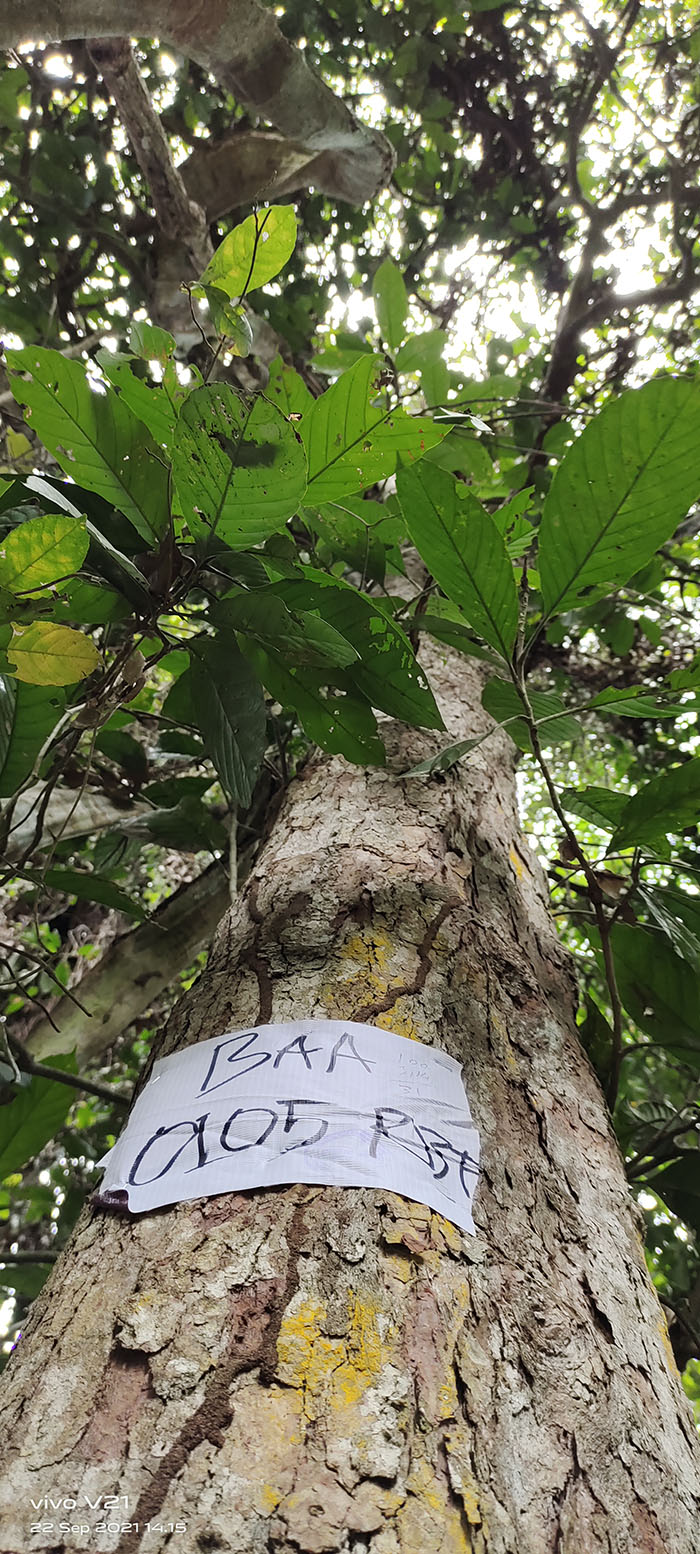 BAA
0105
vivo V21
22 Sep 2021 14.15